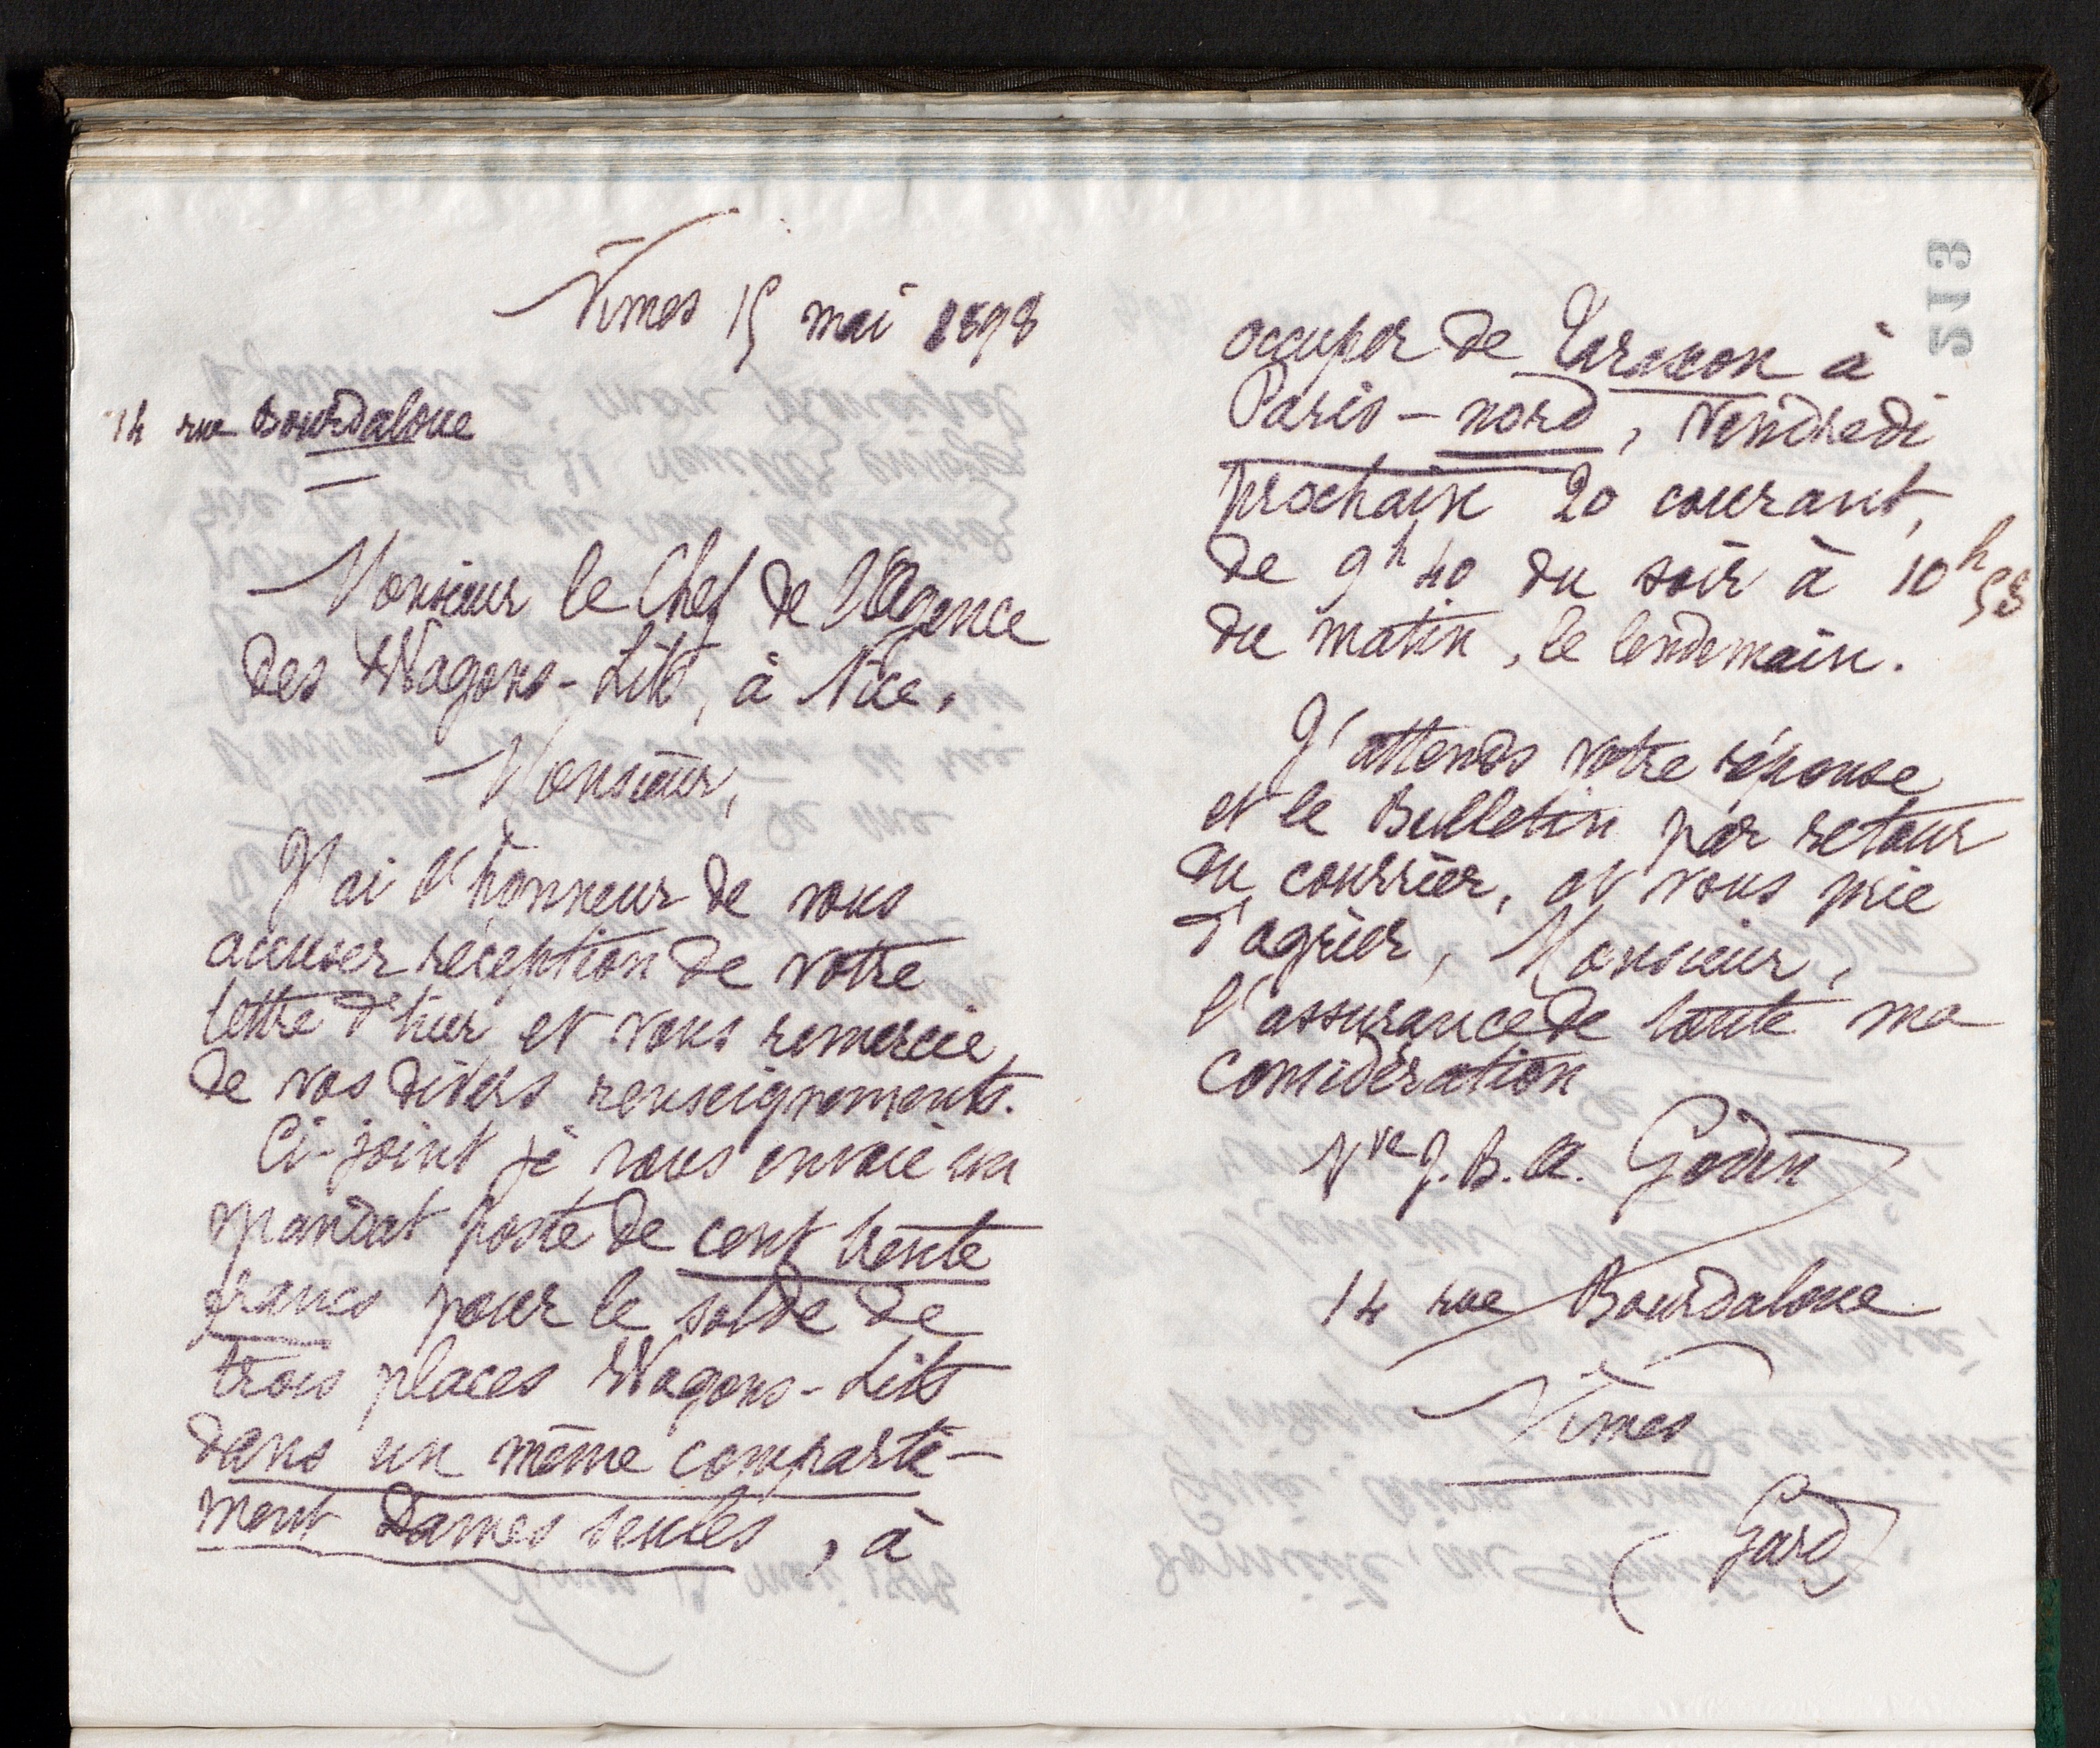 Nîmes 15 mai 1898
14 rue Bourdaloue
Monsieur le Chef de l'Agence
des Wagons-Lits, à Nice.
Monsieur,
J'ai l'honneur de vous
accuser réception de votre
lettre d'hier et vous remercie
de vos divers renseignements.
Ci-joint je vous envoie un
mandat poste de cent trente
francs pour le solde de
trois places Wagons-Lits
dans un même comparti-
ment Dames seules, à
513
occuper de Tarascon à
Paris-nord, Vendredi
prochain 20 courant,
de 9h 40 du soir à 10h 58
du matin, le lendemain.
J'attends votre réponse
et le Bulletin par retour
du courrier, et vous prie
d'agréer, Monsieur,
l'assurance de toute ma
considération
Vve J.B.A. Godin
14 rue Bourdaloue
Nîmes
(Gard)